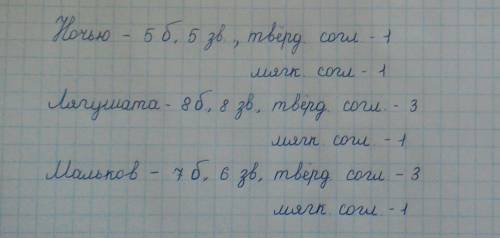 Ночью - 5 б, 5 зв., твёрд. согл - 1
мягк. согл. - 1
Лягушата - 8 б, 8 зв, твёрд. согл. - 3
мягк. согл. - 1
Мальков - 7 б, 6 зв, твёрд. согл. - 3
мягк. согл. - 1